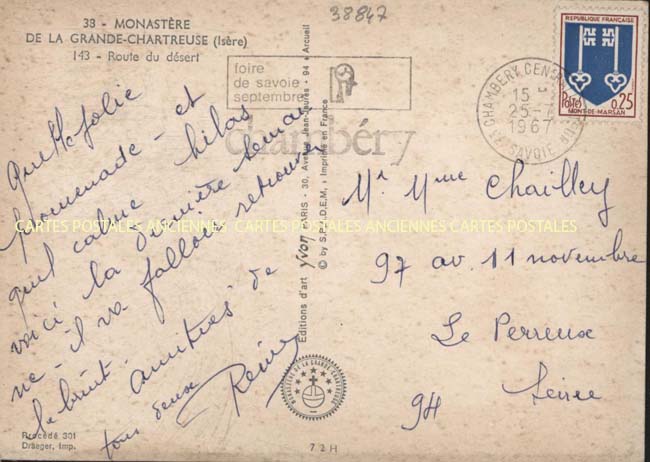 38 - MONASTÈRE
DE LA GRANDE-CHARTREUSE (Isère)
143 - Route du désert
38847
foire
de savoie
septembre
chambéry
CHAMBERY CENTRE
15
25
1967
SAVOIE
REPUBLIQUE FRANÇAISE
Postes 0,25
MONT-DE-MARSAN
Quelle jolie
promenade - et
quel calme hélas
voici la dernière semai
ne - il va falloir retrouver
le bruit. amitiés de
tous deux
CARTES POSTALES ANCIENNES CARTES POSTALES ANCIENNES CARTES POSTALES
Editions d'art yvon PARIS - 30, Avenue Jean-Jaurès - 94 - Arcueil
© by S.P.A.D.E.M. - Imprimé en France
Mr Mme Chailley
97 av. 11 novembre
Le Perreux
94 Seine
MONASTERE DE LA GRANDE CHARTREUSE
Procédé 301
Draeger, Imp.
72H